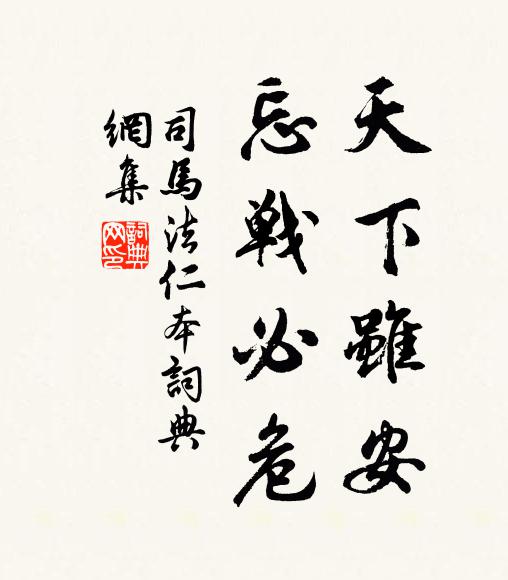 天下雖安
忘戰必危
司馬法仁本詞典
網集
詞典
网印